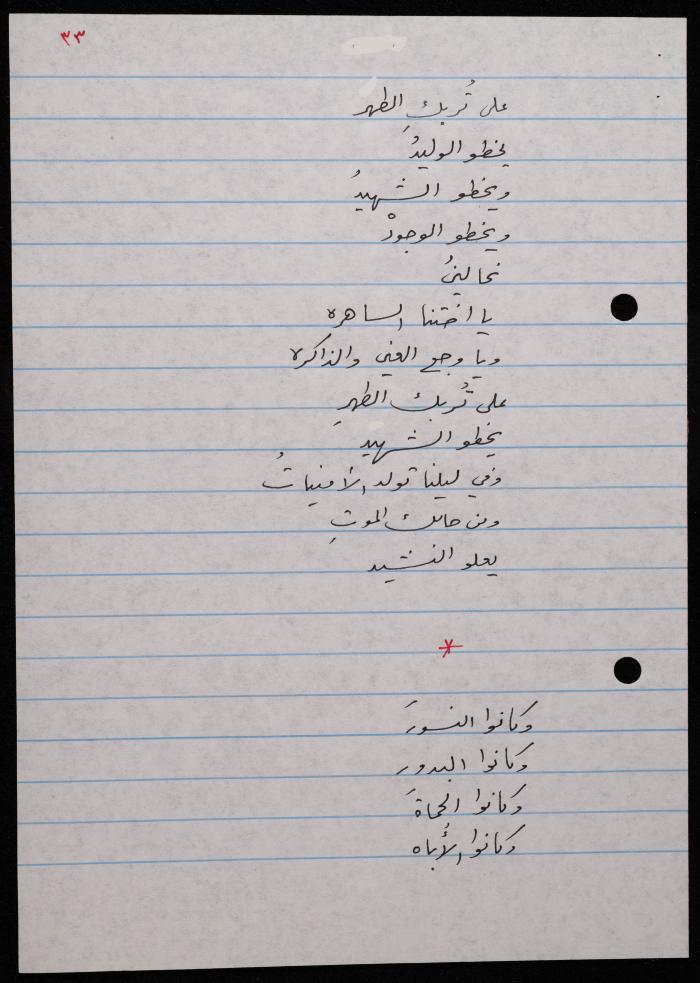 ٣٣
على تُربكِ الطهر
يخطو الوليدُ
ويخطو الشهيدُ
ويخطو الوجودْ
يا اختنا الساهره
ويا وجع العين والذاكره
على تُربك الطهرِ
يخطو الشهيد
وفي ليلنا تولد الأمنياتُ
ومن حالك الموتِ
يعلو النشيد
*
وكانوا النسورَ
وكانوا البدور
وكانوا الحماةَ
وكانوا الأُباه